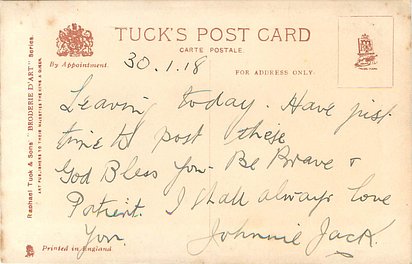 TUCK'S POST CARD
CARTE POSTALE.
By Appointment.
FOR ADDRESS ONLY.
30.1.18
Leaving today. Have just
time to post these
God Bless you. Be Brave &
Patient. I shall always love
you.
Johnnie Jack.
Printed in England.
Raphael Tuck & Sons "BRODERIE D'ART" Series.
ART PUBLISHERS TO THEIR MAJESTIES THE KING & QUEEN.